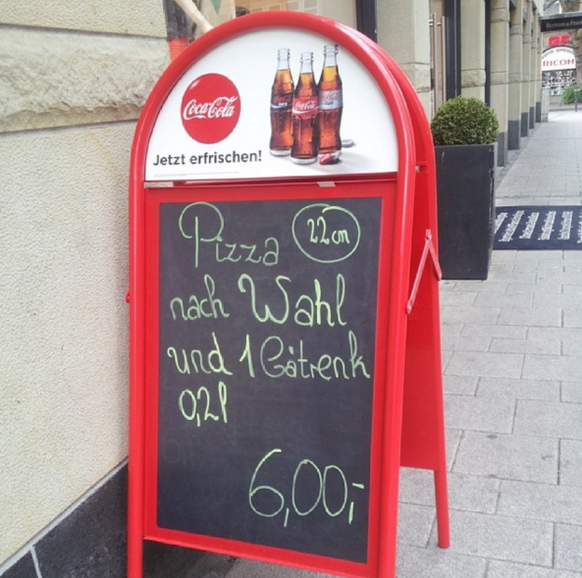 Coca-Cola
Jetzt erfrischen!
Pizza 22 cm
nach Wahl
und 1 Gätrenk
0,2l
6,00,-
RICOH